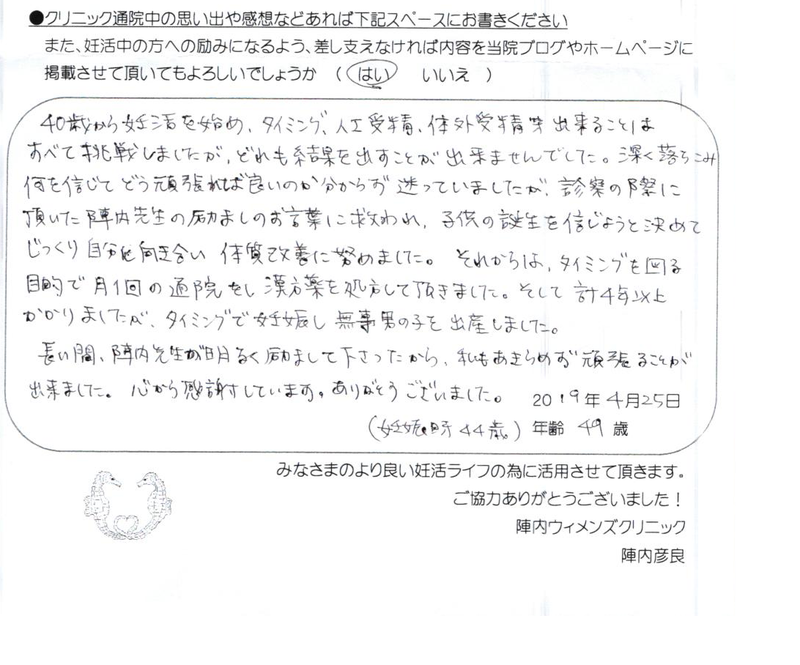 ●クリニック通院中の思い出や感想などあれば下記スペースにお書きください
また、妊活中の方への励みになるよう、差し支えなければ内容を当院ブログやホームページに
掲載させて頂いてもよろしいでしょうか （ はい いいえ ）
40歳から妊活を始め、タイミング、人工受精、体外受精等出来ることは
すべて挑戦しましたが、どれも結果を出すことが出来ませんでした。深く落ちこみ
何を信じてどう頑張れば良いのか分からず迷っていましたが、診察の際に
頂いた陣内先生の励ましのお言葉に救われ、子供の誕生を信じようと決めて
じっくり自分と向き合い体質改善に努めました。それからは、タイミングを図る
目的で月1回の通院をし漢方薬を処方して頂きました。そして計4年以上
かかりましたが、タイミングで妊娠し無事男の子を出産しました。
長い間、陣内先生が明るく励まして下さったから、私もあきらめず頑張ることが
出来ました。心から感謝しています。ありがとうございました。 2019年4月25日
(妊娠時44歳) 年齢 49 歳
みなさまのより良い妊活ライフの為に活用させて頂きます。
ご協力ありがとうございました！
陣内ウィメンズクリニック
陣内彦良